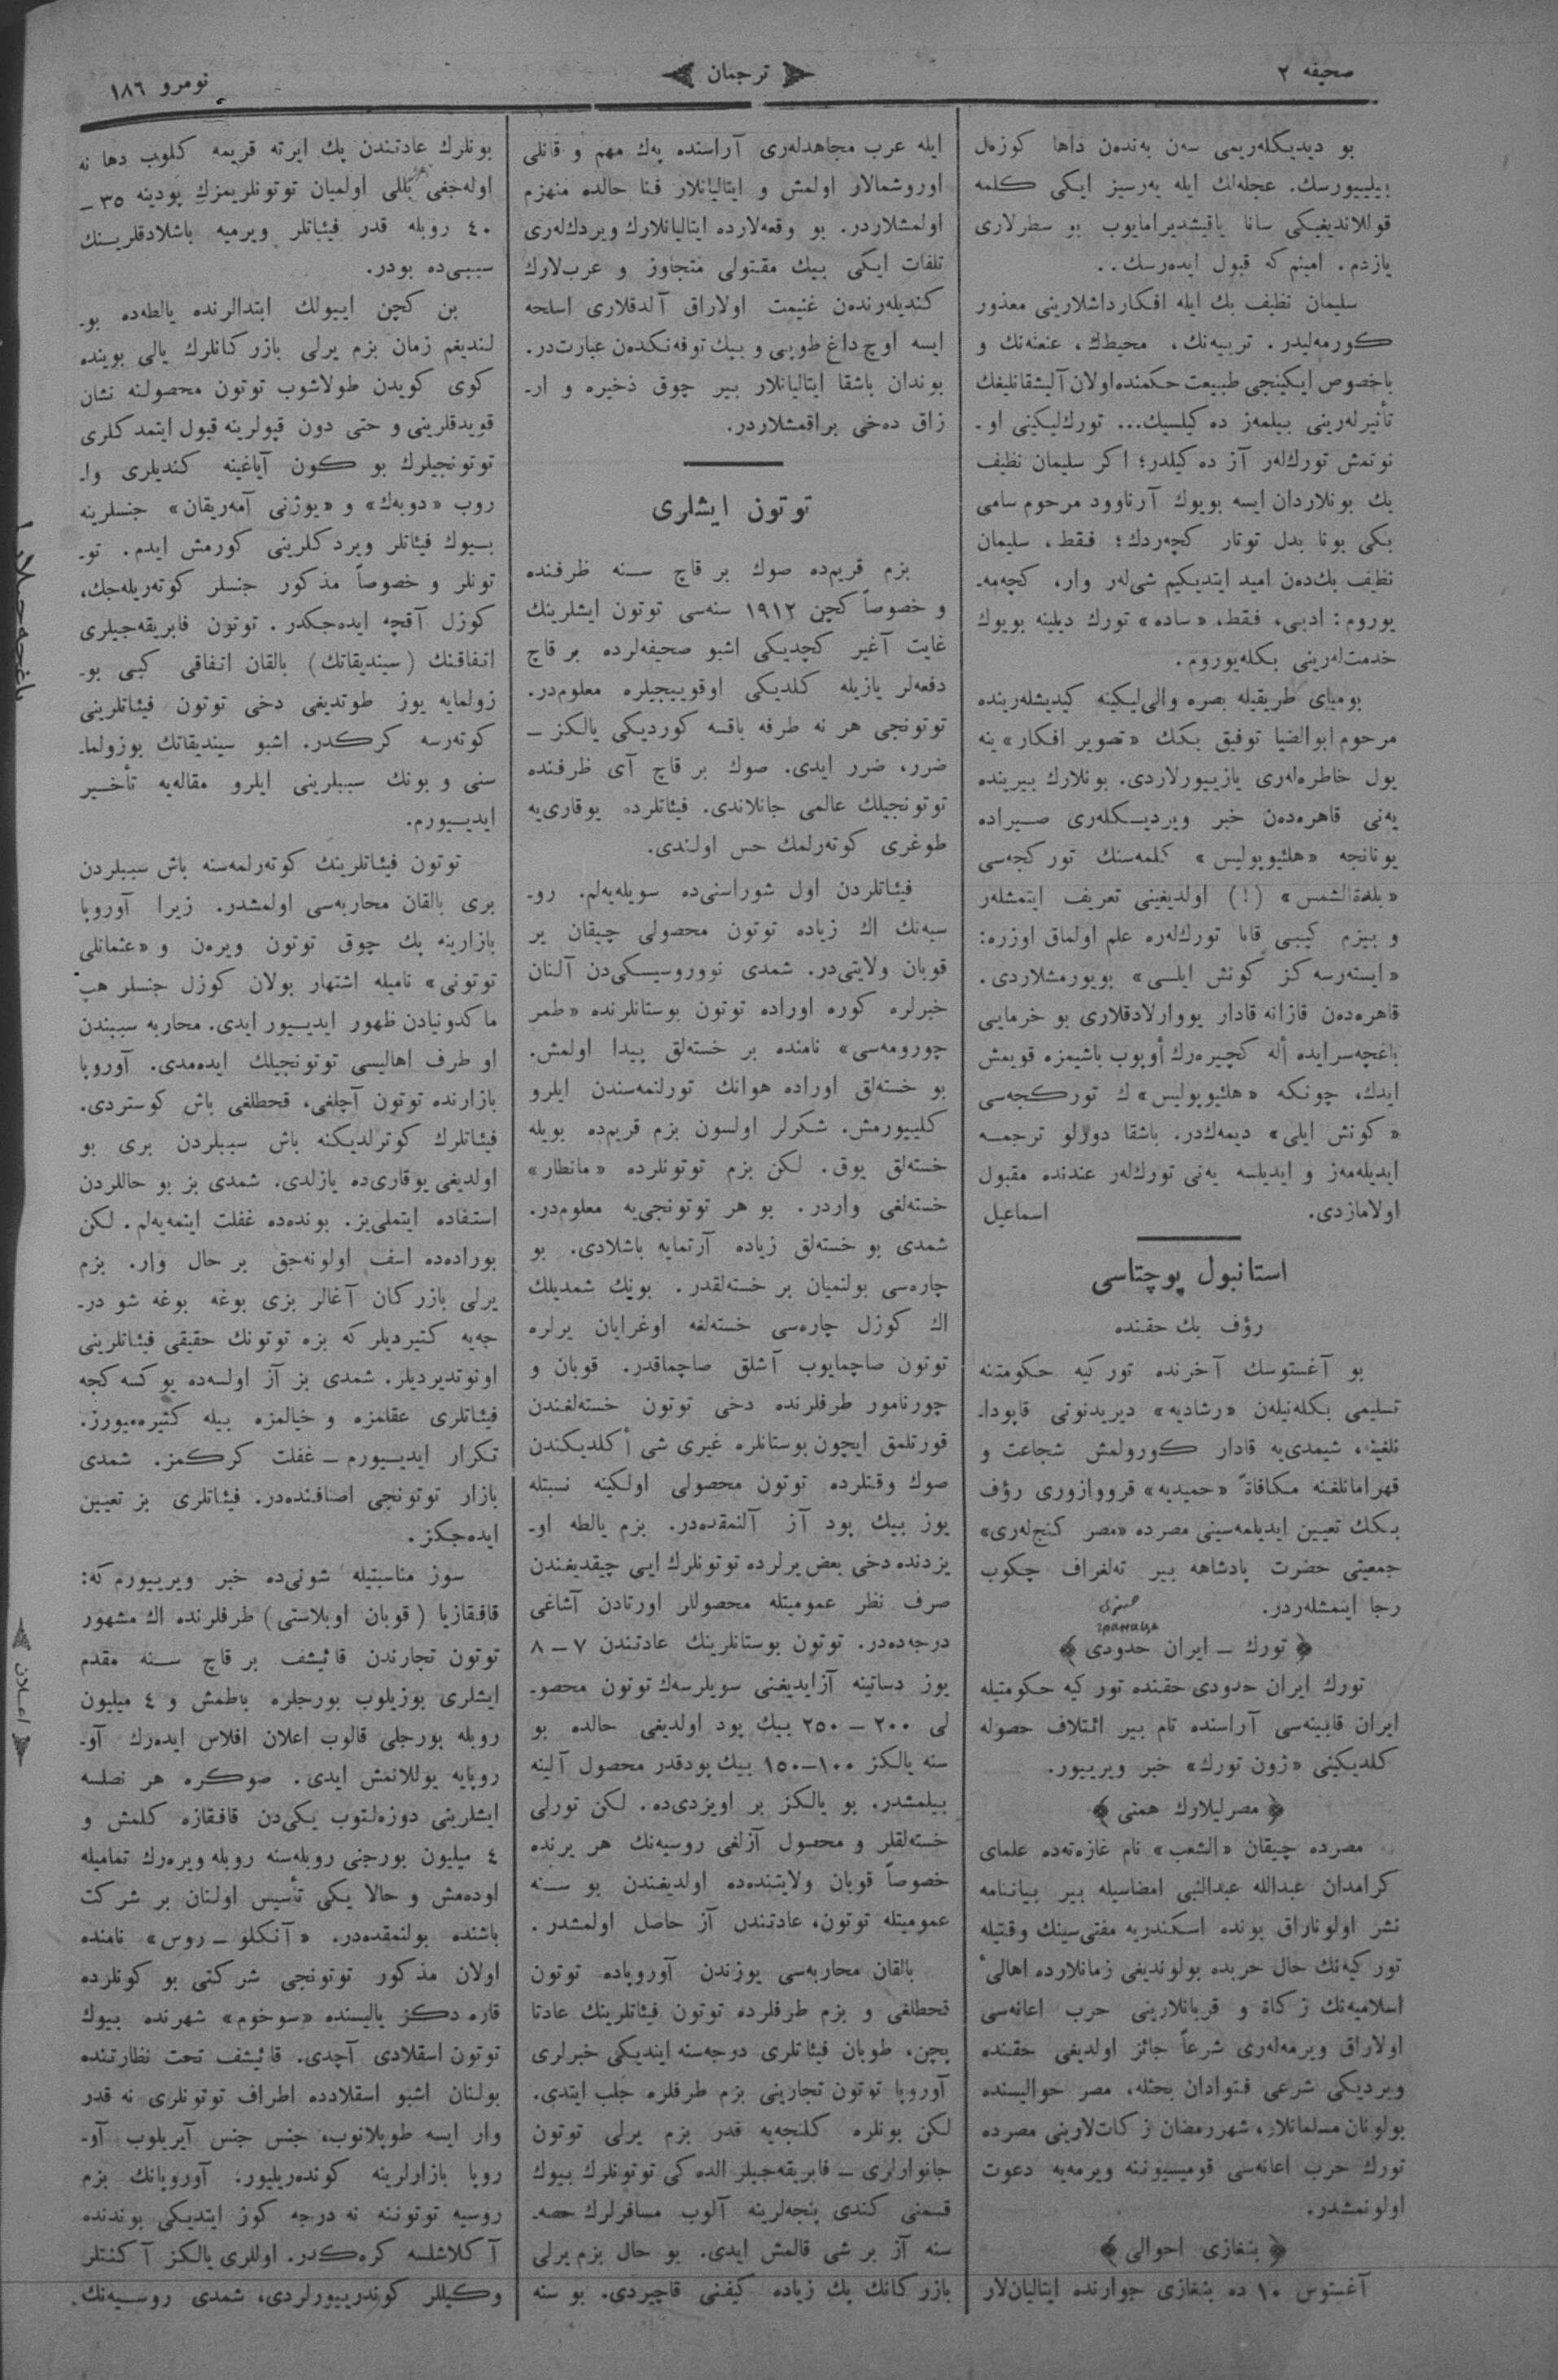 صحيفه ٢
ترجمان
نومرو ١٨٦
بو ديديكله‌ريمى سه‌ن به‌نده‌ن داها كوزه‌ل
بيلييورسك. عجله‌لك ايله يه‌رسيز ايكى كلمه
قوللانديغيكى سانا ياقيشديرامايوب بو سطرلارى
يازدم. امينم كه قبول ايده‌رسك..
سليمان نظيف بك ايله افكارداشلارينى معذور
كورمه‌ليدر. تربيه‌نك، محيطك، عنعنه‌نك و
باخصوص ايكينجى طبيعت حكمنده‌اولان آليشقانليغك
تأثيرله‌رينى بيلمه‌ز ده كيلسيك... تورك‌ليكينى او-
نوتمش تورك‌لر آز ده كيلدر؛ اكر سليمان نظيف
بك بونلاردان ايسه بويوك آرناوود مرحوم سامى
بكى بوتا بدل توتار كچه‌ردك؛ فقط، سليمان
نظيف بك‌دن اميد ايتديكيم شى‌لر وار، كچه‌مه-
يوروم: ادبى، فقط، «ساده» تورك ديلينه بويوك
خدمت‌له‌رينى بكله‌يوروم.
بومباى طريقيله بصره والى‌ليكينه كيديشله‌رينده
مرحوم ابوالضيا توفيق بكك «تصوير افكار» ينه
يول خاطره‌له‌رى يازييورلاردى. بونلارك بيرينده
يه‌نى قاهره‌ده‌ن خبر ويرديكله‌رى صيراده
يونانجه «هلئيوپوليس» كلمه‌سنك توركجه‌سى
«بلدةالشمس» (!) اولديغينى تعريف ايتمشله‌ر
و بيزم كيبى قابا تورك‌لره علم اولماق اوزره:
«ايسته‌رسه كز كونش ايلـى» بويورمشلاردى.
قاهره‌ده‌ن قازانه قادار يووارلادقلارى بو خرمايى
باغچه‌سرايده أله كچيره‌رك أوپوب باشيمزه قويمش
ايدك، چونكه «هلئيوپوليس» ك توركجه‌سى
«كونش ايلى» ديمه‌ك‌در. باشقا دورلو ترجمه
ايديله‌مه‌ز و ايديلسه يه‌نى تورك‌لر عندنده مقبول
اولامازدى. اسماعيل
استانبول پوچتاسى
رؤف بك حقنده
بو آغستوسك آخرنده توركيه حكومتنه
تسليمى بكله‌نيله‌ن «رشاديه» ديريدنوتى قاپودا-
نلغينه، شيمدى‌يه قادار كورولمش شجاعت و
قهرمانلغنه مكافاةً «حميديه» قرووازورى رؤف
بكك تعيين ايديلمه‌سينى مصرده «مصر كنج‌له‌رى»
جمعيتى حضرت پادشاهه بير ته‌لغراف چكوب
رجا ايتمشله‌ردر.
граница
﴿ تورك ــ ايران حدودى ﴾
تورك ايران حدودى حقنده توركيه حكومتيله
ايران قابينه‌سى آراسنده تام بير ائتلاف حصوله
كلديكينى «ژون تورك» خبر ويرييور.
﴿ مصرليلارك همتى ﴾
مصرده چيقان «الشعب» نام غازه‌ته‌ده علماى
كرامدان عبدالله عبدالنبى امضاسيله بير بياننامه
نشر اولوناراق بونده اسكندريه مفتى‌سينك وقتيله
توركيه‌نك حال حربده بولونديغى زمانلارده اهالئ
اسلاميه‌نك زكاة و قربانلارينى حرب اعانه‌سى
اولاراق ويرمه‌له‌رى شرعاً جائز اولديغى حقنده
ويرديكى شرعى فتوادان بحثله، مصر حواليسنده
بولونان مسلمانلار، شهررمضان زكات‌لارينى مصرده
تورك حرب اعانه‌سى قوميسيوننه ويرمه‌يه دعوت
اولونمشدر.
﴿ بنغازى احوالى ﴾
آغستوس ١٠ ده بنغازى جوارنده ايتاليان‌لار
ايله عرب مجاهدله‌رى آراسنده پك مهم و قانلى
اوروشمالار اولمش و ايتاليانلار فنا حالده منهزم
اولمشلاردر. بو وقعه‌لارده ايتاليانلارك ويردكله‌رى
تلفات ايكى بيك مقتولى متجاوز و عرب‌لارك
كنديله‌رنده‌ن غنيمت اولاراق آلدقلارى اسلحه
ايسه اوچ داغ طوپى و بيك توفه‌نكده‌ن عبارت‌در.
بوندان باشقا ايتاليانلار بير چوق ذخيره و ار-
زاق ده‌خى براقمشلاردر.
توتون ايشلرى
بزم قريم‌ده صوك بر قاچ سنه ظرفنده
و خصوصاً كچن ١٩١٢ سنه‌سى توتون ايشلرينك
غايت آغير كچديكى اشبو صحيفه‌لرده بر قاچ
دفعه‌لر يازيله كلديكى اوقوييجيلره معلوم‌در.
توتونجى هر نه طرفه باقسه كورديكى يالكز ــ
ضرر، ضرر ايدى. صوك بر قاچ آى ظرفنده
توتونجيلك عالمى جانلاندى. فيئاتلرده يوقارى‌يه
طوغرى كوته‌رلمك حس اولندى.
فيئاتلردن اول شوراسنى‌ده سويله‌يه‌لم. رو-
سيه‌نك اك زياده توتون محصولى چيقان ير
قوبان ولايتى‌در. شمدى نووروسيسكى‌دن آلنان
خبرلره كوره اوراده توتون بوستانلرنده «طمر
چورومه‌سى» نامنده بر خسته‌لق پيدا اولمش.
بو خسته‌لق اوراده هوانك تورلنمه‌سندن ايلرو
كلييورمش. شكرلر اولسون بزم قريم‌ده بويله
خسته‌لق يوق. لكن بزم توتونلرده «مانطار»
خسته‌لغى واردر. بو هر توتونجى‌يه معلوم‌در.
شمدى بو خسته‌لق زياده آرتمايه باشلادى. بو
چاره‌سى بولنميان بر خسته‌لقدر. بونك شمديلك
اك كوزل چاره‌سى خسته‌لغه اوغرايان يرلره
توتون صاچمايوب آشلق صاچماقدر. قوبان و
چورنامور طرفلرنده دخى توتون خسته‌لغندن
قورتلمق ايچون بوستانلره غيرى شى أكلديكندن
صوك وقتلرده توتون محصولى اولكينه نسبتله
يوز بيك پود آز آلنمقده‌در. بزم يالطه او-
يزدنده دخى بعض يرلرده توتونلرك ايى چيقديغندن
صرف نظر عموميتله محصوللر اورتادن آشاغى
درجه‌ده‌در. توتون بوستانلرينك عادتندن ٧ــ٨
يوز دساتينه آزايديغنى سويلرسه‌ك توتون محصو-
لى ٢٠٠ ــ ٢٥٠ بيك پود اولديغى حالده بو
سنه يالكز ١٠٠ــ١٥٠ بيك پودقدر محصول آلينه
بيلمشدر. بو يالكز بر اويزدى‌ده. لكن تورلى
خسته‌لقلر و محصول آزلغى روسيه‌نك هر يرنده
خصوصاً قوبان ولايتنده‌ده اولديغندن بو سنه
عموميتله توتون، عادتندن آز حاصل اولمشدر.
بالقان محاربه‌سى يوزندن آوروپاده توتون
قحطلغى و بزم طرفلرده توتون فيئاتلرينك عادتا
پچن، طوبان فيئاتلرى درجه‌سنه اينديكى خبرلرى
آوروپا توتون تجارينى بزم طرفلره جلب ايتدى.
لكن بونلره كلنجه‌يه قدر بزم يرلى توتون
جانوارلرى ــ فابريقه‌جيلر الده كى توتونلرك بيوك
قسمنى كندى پنجه‌لرينه آلوب مسافرلرك حصه-
سنه آز بر شى قالمش ايدى. بو حال بزم يرلى
بازركانك پك زياده كيفنى قاچيردى. بو سنه
بونلرك عادتندن پك ايرته قريمه كلوب دها نه
اوله‌جغى بللى اولميان توتونلريمزك پودينه ٣٥ ــ
٤٠ روبله قدر فيئاتلر ويرميه باشلادقلرينك
سببى‌ده بودر.
بن كچن اييولك ابتدالرنده يالطه‌ده بو-
لنديغم زمان بزم يرلى بازركانلرك يالى بوينده
كوى كويدن طولاشوب توتون محصولنه نشان
قويدقلرينى و حتى دون قپولرينه قبول ايتمدكلرى
توتونجيلرك بو كون آياغينه كنديلرى وا-
روب «دوبه‌ك» و «يوژنى آمه‌ريقان» جنسلرينه
بيوك فيئاتلر ويردكلرينى كورمش ايدم. تو-
تونلر و خصوصاً مذكور جنسلر كوته‌ريله‌جك،
كوزل آقچه ايده‌جكدر. توتون فابريقه‌جيلرى
اتفاقنك (سينديقاتك) بالقان اتفاقى كبى بو-
زولمايه يوز طوتديغى دخى توتون فيئاتلرينى
كوته‌رسه كركدر. اشبو سينديقاتك بوزولما-
سنى و بونك سببلرينى ايلرو مقاله‌يه تأخير
ايدييورم.
توتون فيئاتلرينك كوته‌رلمه‌سنه باش سببلردن
برى بالقان محاربه‌سى اولمشدر. زيرا آوروپا
بازارينه پك چوق توتون ويره‌ن و «عثمانلى
توتونى» ناميله اشتهار بولان كوزل جنسلر هپ
ماكدونيادن ظهور ايدييور ايدى. محاربه سببندن
او طرف اهاليسى توتونجيلك ايده‌مدى. آوروپا
بازارنده توتون آچلغى، قحطلغى باش كوستردى.
فيئاتلرك كوترلديكنه باش سببلردن برى بو
اولديغى يوقارى‌ده يازلدى. شمدى بز بو حاللردن
استفاده ايتملى‌يز. بونده‌ده غفلت ايتمه‌يه‌لم. لكن
بوراده‌ده اسف اولونه‌جق بر حال وار. بزم
يرلى بازركان آغالر بزى بوغه بوغه شو در-
جه‌يه كتيرديلر كه بزه توتونك حقيقى فيئاتلرينى
اونوتديرديلر. شمدى بز آز اولسه‌ده يوكسه كجه
فيئاتلرى عقلمزه و خيالمزه بيله كتيره‌ميورز.
تكرار ايدييورم ــ غفلت كركمز. شمدى
بازار توتونجى اصنافنده‌در. فيئاتلرى بز تعيين
ايده‌جكز.
سوز مناسبتيله شونى‌ده خبر ويرييورم كه:
قافقازيا (قوبان اوبلاستى) طرفلرنده اك مشهور
توتون تجارندن قائيشف بر قاچ سنه مقدم
ايشلرى بوزيلوب بورجلره باطمش و ٤ ميليون
روبله بورجلى قالوب اعلان افلاس ايده‌رك آو-
روپايه يوللانمش ايدى. صوكره هر نصلسه
ايشلرينى دوزه‌لتوب يكى‌دن قافقازه كلمش و
٤ ميليون بورجنى روبله‌سنه روبله ويره‌رك تماميله
اوده‌مش و حالا يكى تأسيس اولنان بر شركت
باشنده بولنمقده‌در. «آنكلو ــ روس» نامنده
اولان مذكور توتونجى شركتى بو كونلرده
قاره دكز ياليسنده «سوخوم» شهرنده بيوك
توتون اسقلادى آچدى. قائيشف تحت نظارتنده
بولنان اشبو اسقلادده اطراف توتونلرى نه قدر
وار ايسه طوپلانوب، جنس جنس آيريلوب آو-
روپا بازارلرينه كونده‌ريليور. آوروپانك بزم
روسيه توتوننه نه درجه كوز ايتديكى بوندنده
آكلاشلسه كره‌كدر. اوللرى يالكز آكنتلر
وكيللر كوندرييورلردى، شمدى روسيه‌نك
اعلان